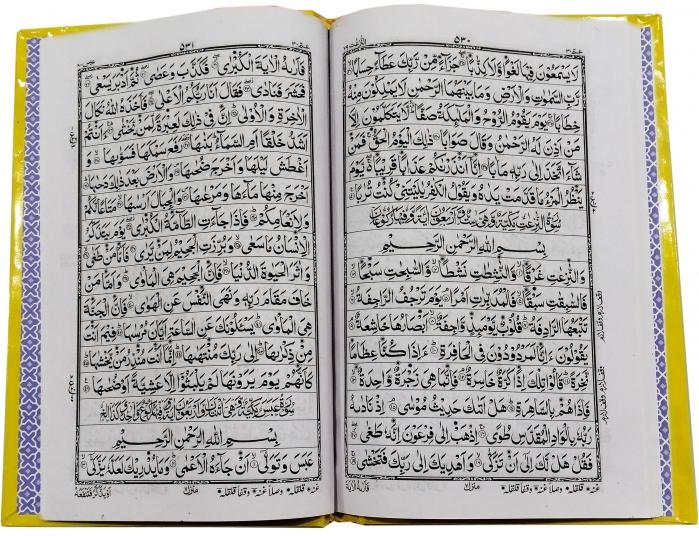 النّٰزِعٰت ٧٩
٥٣٠
عَمَّ ٣٠
لَا يَسْمَعُوْنَ فِيْهَا لَغْوًا وَّلَا كِذّٰبًا جَزَآءً مِّنْ رَّبِّكَ عَطَآءً حِسَابًا
رَّبِّ السَّمٰوٰتِ وَالْاَرْضِ وَمَا بَيْنَهُمَا الرَّحْمٰنِ لَا يَمْلِكُوْنَ مِنْهُ
خِطَابًا يَوْمَ يَقُوْمُ الرُّوْحُ وَالْمَلٰٓئِكَةُ صَفًّا لَّا يَتَكَلَّمُوْنَ اِلَّا
مَنْ اَذِنَ لَهُ الرَّحْمٰنُ وَقَالَ صَوَابًا ذٰلِكَ الْيَوْمُ الْحَقُّ فَمَنْ
شَآءَ اتَّخَذَ اِلٰى رَبِّهٖ مَاٰبًا اِنَّآ اَنْذَرْنٰكُمْ عَذَابًا قَرِيْبًا يَّوْمَ
يَنْظُرُ الْمَرْءُ مَا قَدَّمَتْ يَدٰهُ وَيَقُوْلُ الْكٰفِرُ يٰلَيْتَنِيْ كُنْتُ تُرٰبًا
سُوْرَةُ النّٰزِعٰتِ مَكِّيَّةٌ وَّهِيَ سِتٌّ وَّاَرْبَعُوْنَ اٰيَةً وَّفِيْهَا رُكُوْعَانِ
بِسْمِ اللّٰهِ الرَّحْمٰنِ الرَّحِيْمِ
وَالنّٰزِعٰتِ غَرْقًا وَّالنّٰشِطٰتِ نَشْطًا وَّالسّٰبِحٰتِ سَبْحًا
فَالسّٰبِقٰتِ سَبْقًا فَالْمُدَبِّرٰتِ اَمْرًا يَوْمَ تَرْجُفُ الرَّاجِفَةُ
تَتْبَعُهَا الرَّادِفَةُ قُلُوْبٌ يَّوْمَئِذٍ وَّاجِفَةٌ اَبْصَارُهَا خَاشِعَةٌ
يَقُوْلُوْنَ ءَاِنَّا لَمَرْدُوْدُوْنَ فِي الْحَافِرَةِ ءَاِذَا كُنَّا عِظَامًا
نَّخِرَةً قَالُوْا تِلْكَ اِذًا كَرَّةٌ خَاسِرَةٌ فَاِنَّمَا هِيَ زَجْرَةٌ وَّاحِدَةٌ
فَاِذَا هُمْ بِالسَّاهِرَةِ هَلْ اَتٰىكَ حَدِيْثُ مُوْسٰى اِذْ نَادٰىهُ
رَبُّهٗ بِالْوَادِ الْمُقَدَّسِ طُوًى اِذْهَبْ اِلٰى فِرْعَوْنَ اِنَّهٗ طَغٰى
فَقُلْ هَلْ لَّكَ اِلٰٓى اَنْ تَزَكّٰى وَاَهْدِيَكَ اِلٰى رَبِّكَ فَتَخْشٰى
منزل
٥٣١
فَاَرٰىهُ الْاٰيَةَ الْكُبْرٰى فَكَذَّبَ وَعَصٰى ثُمَّ اَدْبَرَ يَسْعٰى
فَحَشَرَ فَنَادٰى فَقَالَ اَنَا رَبُّكُمُ الْاَعْلٰى فَاَخَذَهُ اللّٰهُ نَكَالَ
الْاٰخِرَةِ وَالْاُوْلٰى اِنَّ فِيْ ذٰلِكَ لَعِبْرَةً لِّمَنْ يَّخْشٰى ءَاَنْتُمْ
اَشَدُّ خَلْقًا اَمِ السَّمَآءُ بَنٰىهَا رَفَعَ سَمْكَهَا فَسَوّٰىهَا وَ
اَغْطَشَ لَيْلَهَا وَاَخْرَجَ ضُحٰىهَا وَالْاَرْضَ بَعْدَ ذٰلِكَ دَحٰىهَا
اَخْرَجَ مِنْهَا مَآءَهَا وَمَرْعٰىهَا وَالْجِبَالَ اَرْسٰىهَا مَتَاعًا لَّكُمْ
وَلِاَنْعَامِكُمْ فَاِذَا جَآءَتِ الطَّآمَّةُ الْكُبْرٰى يَوْمَ يَتَذَكَّرُ
الْاِنْسَانُ مَا سَعٰى وَبُرِّزَتِ الْجَحِيْمُ لِمَنْ يَّرٰى فَاَمَّا مَنْ طَغٰى
وَاٰثَرَ الْحَيٰوةَ الدُّنْيَا فَاِنَّ الْجَحِيْمَ هِيَ الْمَاْوٰى وَاَمَّا مَنْ
خَافَ مَقَامَ رَبِّهٖ وَنَهَى النَّفْسَ عَنِ الْهَوٰى فَاِنَّ الْجَنَّةَ
هِيَ الْمَاْوٰى يَسْـَٔلُوْنَكَ عَنِ السَّاعَةِ اَيَّانَ مُرْسٰىهَا فِيْمَ اَنْتَ
مِنْ ذِكْرٰىهَا اِلٰى رَبِّكَ مُنْتَهٰىهَا اِنَّمَآ اَنْتَ مُنْذِرُ مَنْ يَّخْشٰىهَا
كَاَنَّهُمْ يَوْمَ يَرَوْنَهَا لَمْ يَلْبَثُوْٓا اِلَّا عَشِيَّةً اَوْ ضُحٰىهَا
سُوْرَةُ عَبَسَ مَكِّيَّةٌ وَّهِيَ اثْنَتَانِ وَاَرْبَعُوْنَ اٰيَةً
بِسْمِ اللّٰهِ الرَّحْمٰنِ الرَّحِيْمِ
عَبَسَ وَتَوَلّٰٓى اَنْ جَآءَهُ الْاَعْمٰى وَمَا يُدْرِيْكَ لَعَلَّهٗ يَزَّكّٰٓى
منزل